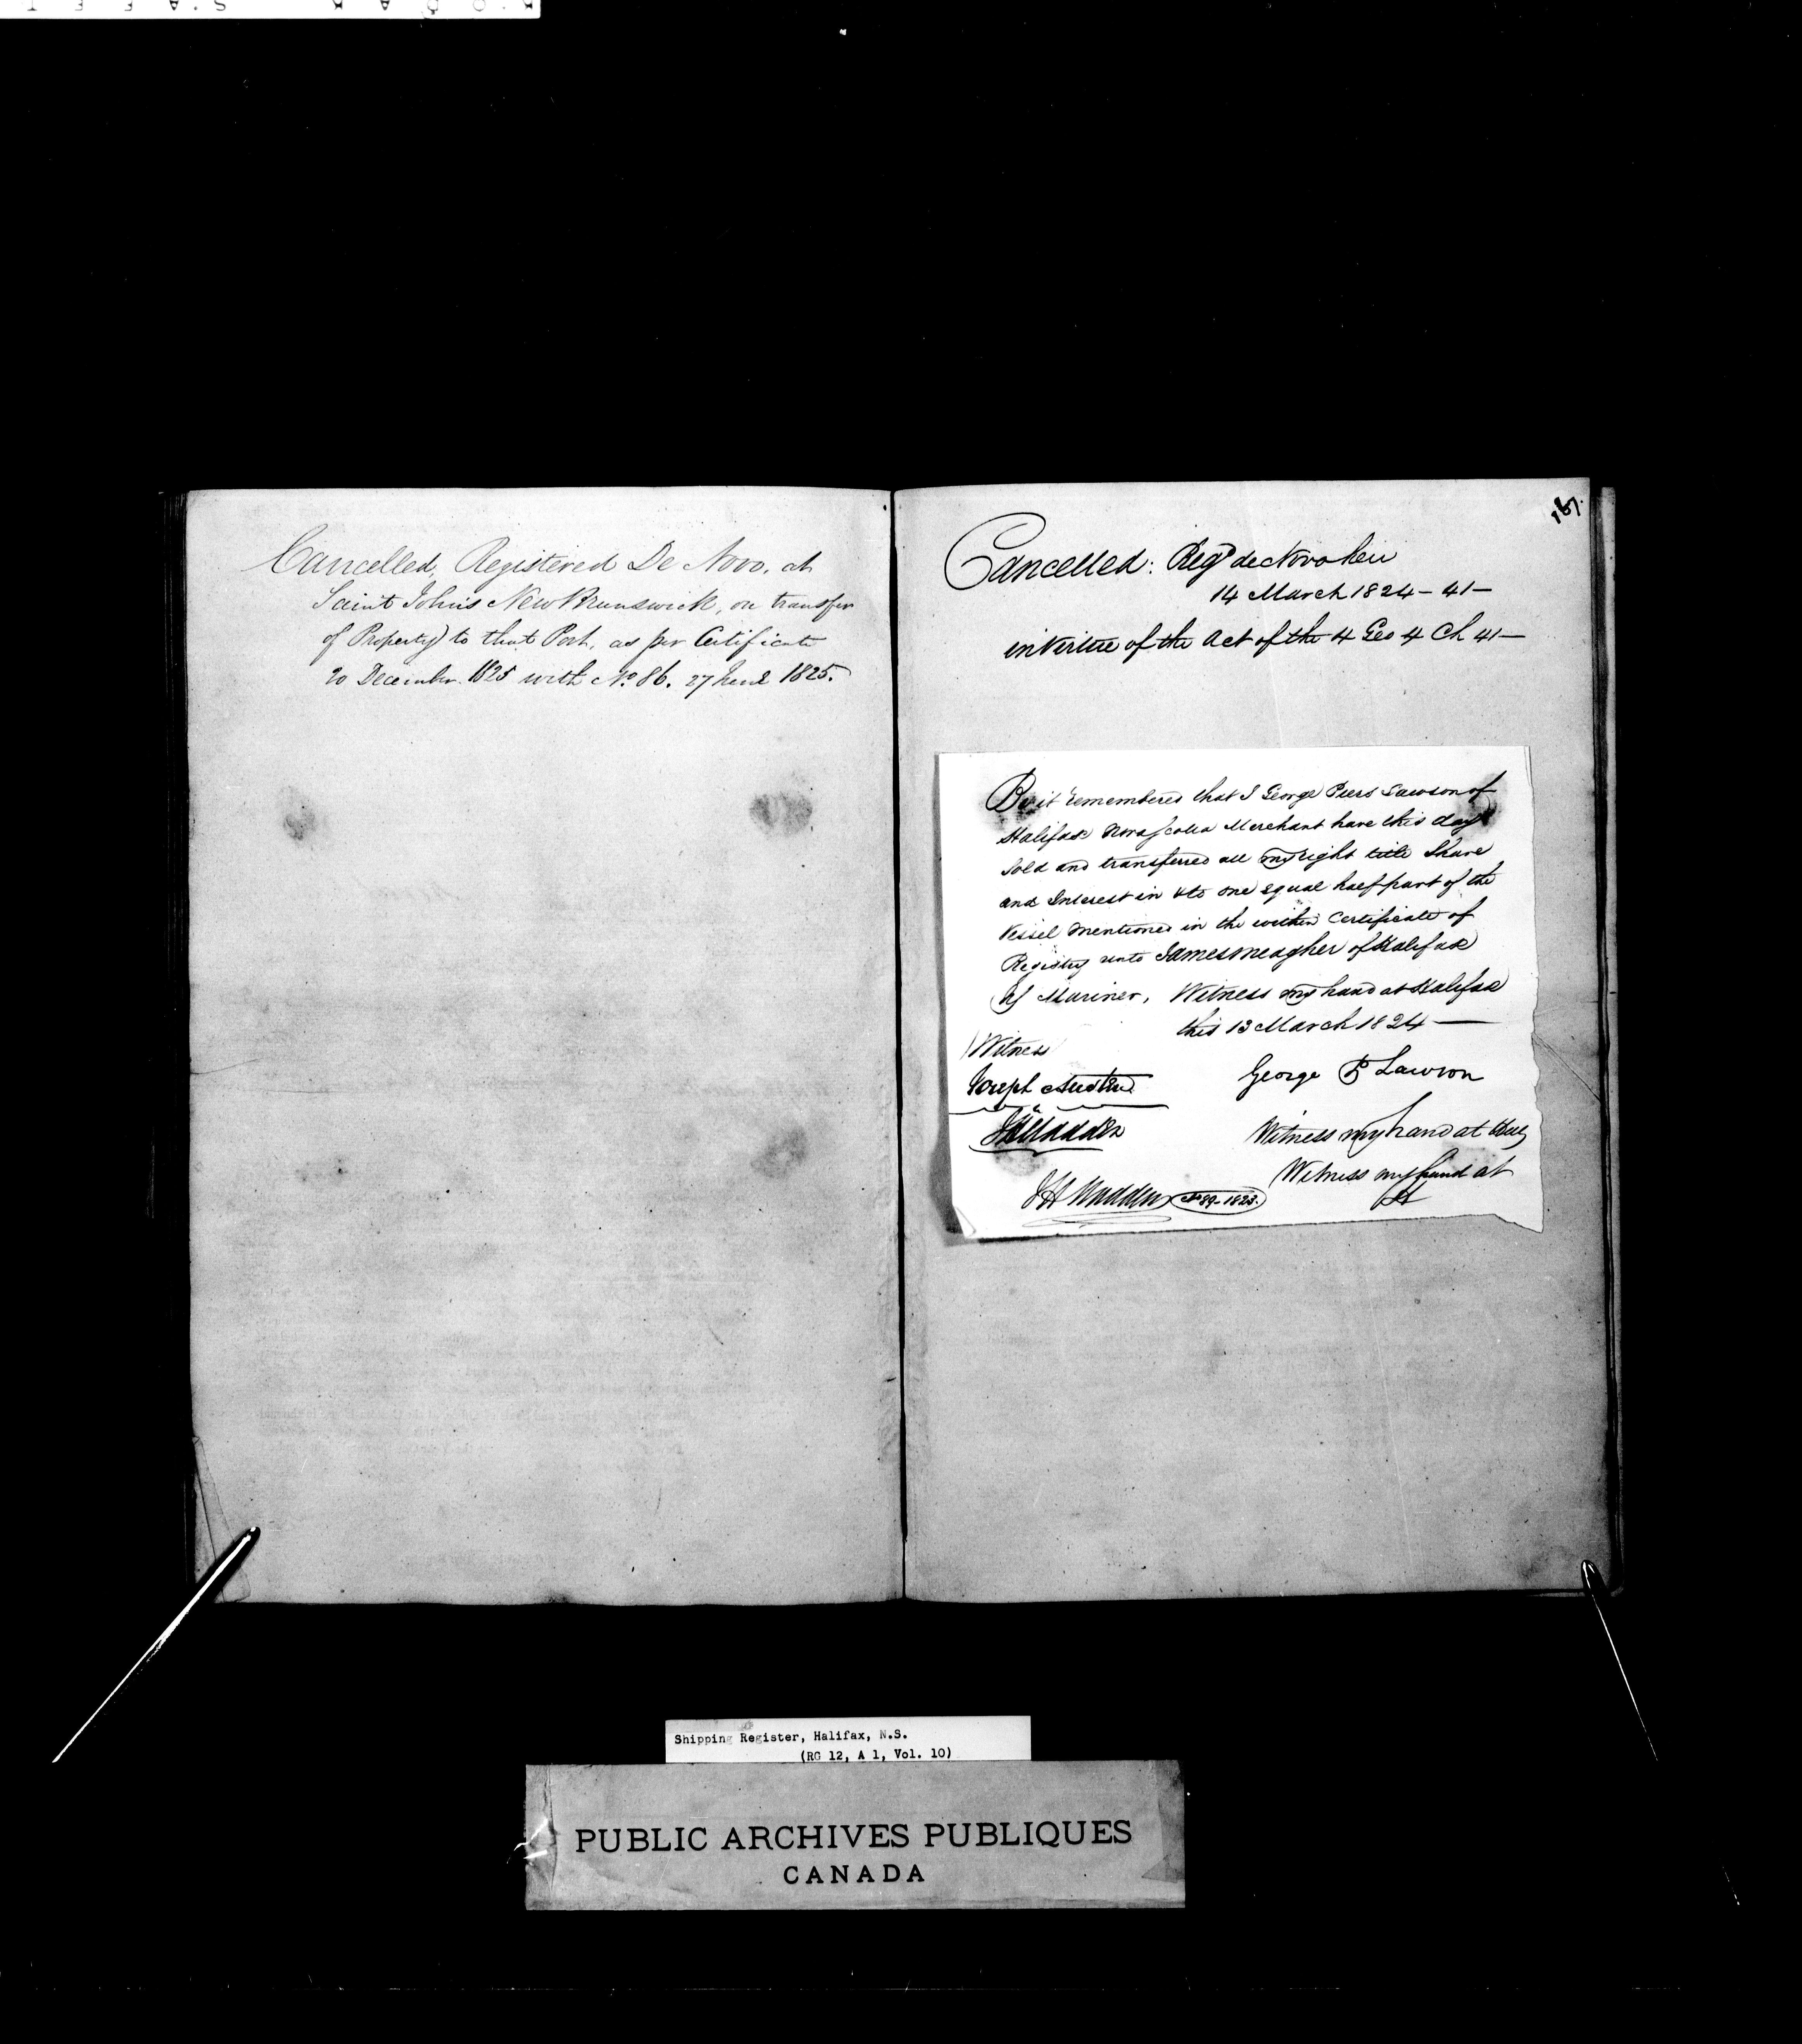 Cancelled, Registered De Novo, at
Saint John's New Brunswick, on transfer
of Property to that Port, as per Certificate
20 December 1825 with No. 86. 27 June 1825.
161.
Cancelled: Regd de Novo here
14 March 1824 - 41 -
in Virtue of the Act of the 4 Geo 4 Ch 41 —
Be it remembered that I George Piers Lawson of
Halifax Nova Scotia Merchant have this day
Sold and transferred all my right title Share
and Interest in & to one equal half part of the
Vessel mentioned in the within Certificate of
Registry unto James Meagher of Halifax
Mariner, Witness my hand at Halifax
this 13 March 1824 —
Witness
Joseph Austen
George P Lawson
JH Madden
Witness my hand at
Witness my hand at
JH Madden No 89 - 1823.
Shipping Register, Halifax, N.S.
(RG 12, A 1, Vol. 10)
PUBLIC ARCHIVES PUBLIQUES
CANADA